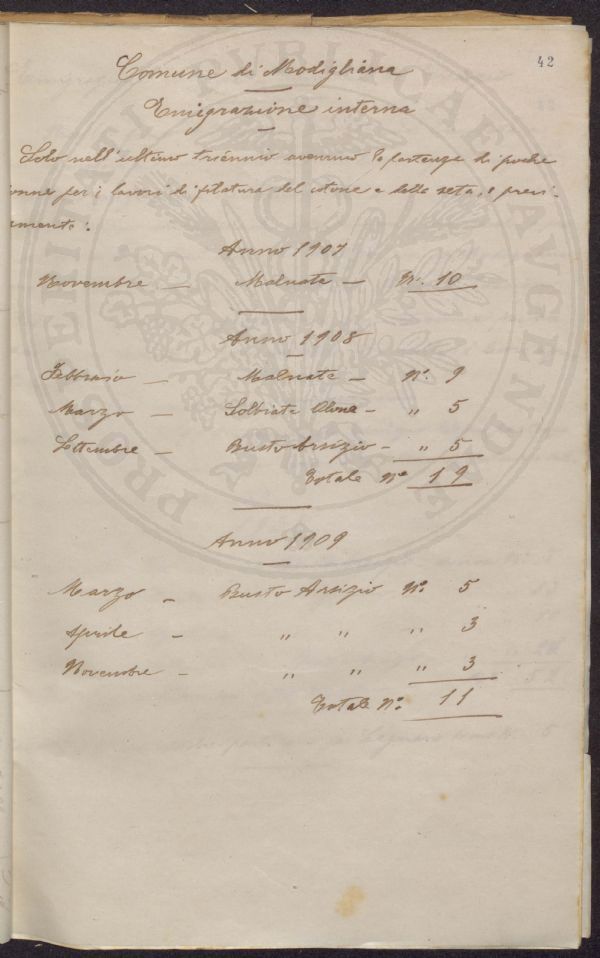 42
Comune di Modigliana
Emigrazione interna
Solo nell'ultimo triennio avennero le partenze di poche
onne per i lavori di filatura del cotone e della seta, e preci-
amente:
Anno 1907
Novembre — Malnate — N. 10
Anno 1908
Febbraio — Malnate — N.° 9
Marzo — Solbiate Olona — " 5
Settembre — Busto Arsizio — " 5
Totale N.° 19
Anno 1909
Marzo — Busto Arsizio N.° 5
Aprile — " " " 3
Novembre — " " " 3
Totale N.° 11
PROSPERITATI PVBLICAE AVGENDAE